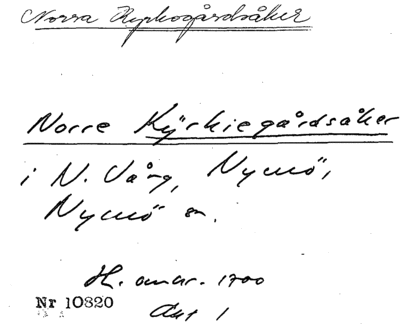 Norra Kyrkogårdsåker
Norre Kÿrkiegårdsåker
i N. Vång, Nymö,
Nymö sn.
H. omkr. 1700
Nr 10820
Akt 1